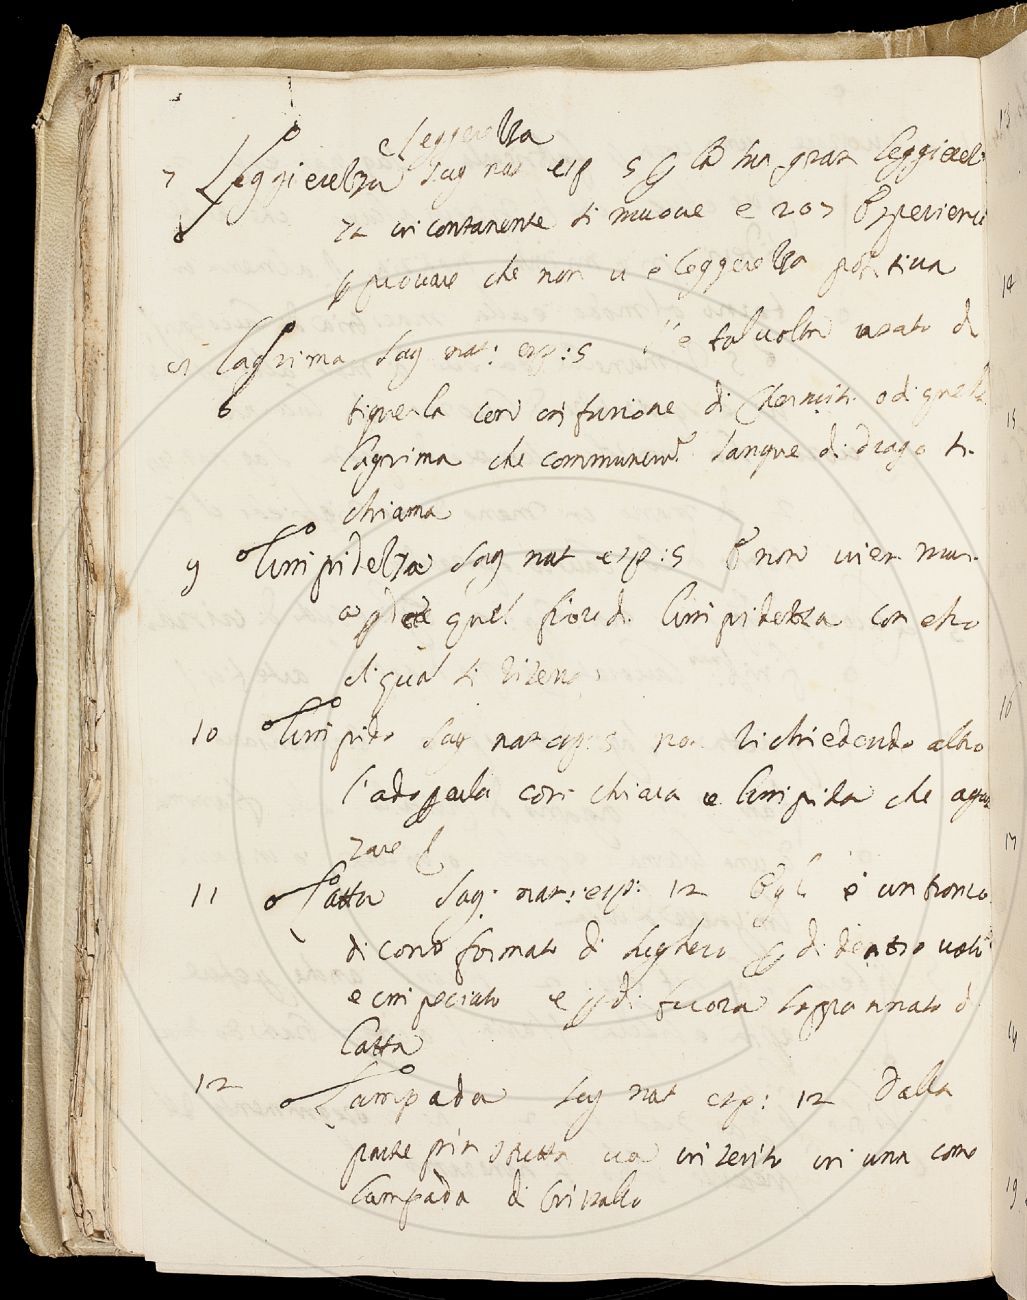 e leggerezza
7 Leggierezza Sag nat esp 5 ha gran leggierez
za incontanente si muove e 207 Esperienze
p provare che non vi è leggerezza positiva
Lagrima Sag. nat: esp: 5 è talvolta usato di
6 tignerla con infusione di Chermisi o di quella
lagrima che communem. sangue di drago si
chiama
9 Limpidezza Sag nat esp: 5 non vien mai
a quel fiore di limpidezza con che
si ritenne
10 Limpido Sag nat esp: 5 non richiedendo altro
l'adoperla con chiara e limpida che agua
zare
11 Latta Sag: nat: esp: 12 è un tronco
di cono formato di sughero di dentro voto
e impeciato e di fuora soppannato di
latta
12 Lampada Sag nat esp: 12 Dalla
parte più stretta va inserito in una come
lampada di Cristallo
14
15
16
17
19